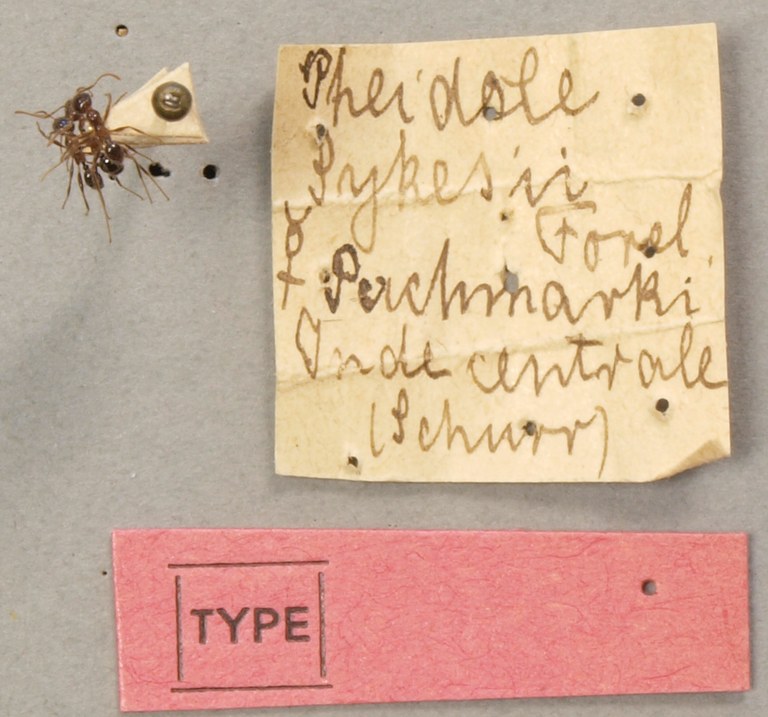 Pheidole
Sykesii
Forel.
☿ Puchmarki
Inde centrale
(Schurr)
TYPE